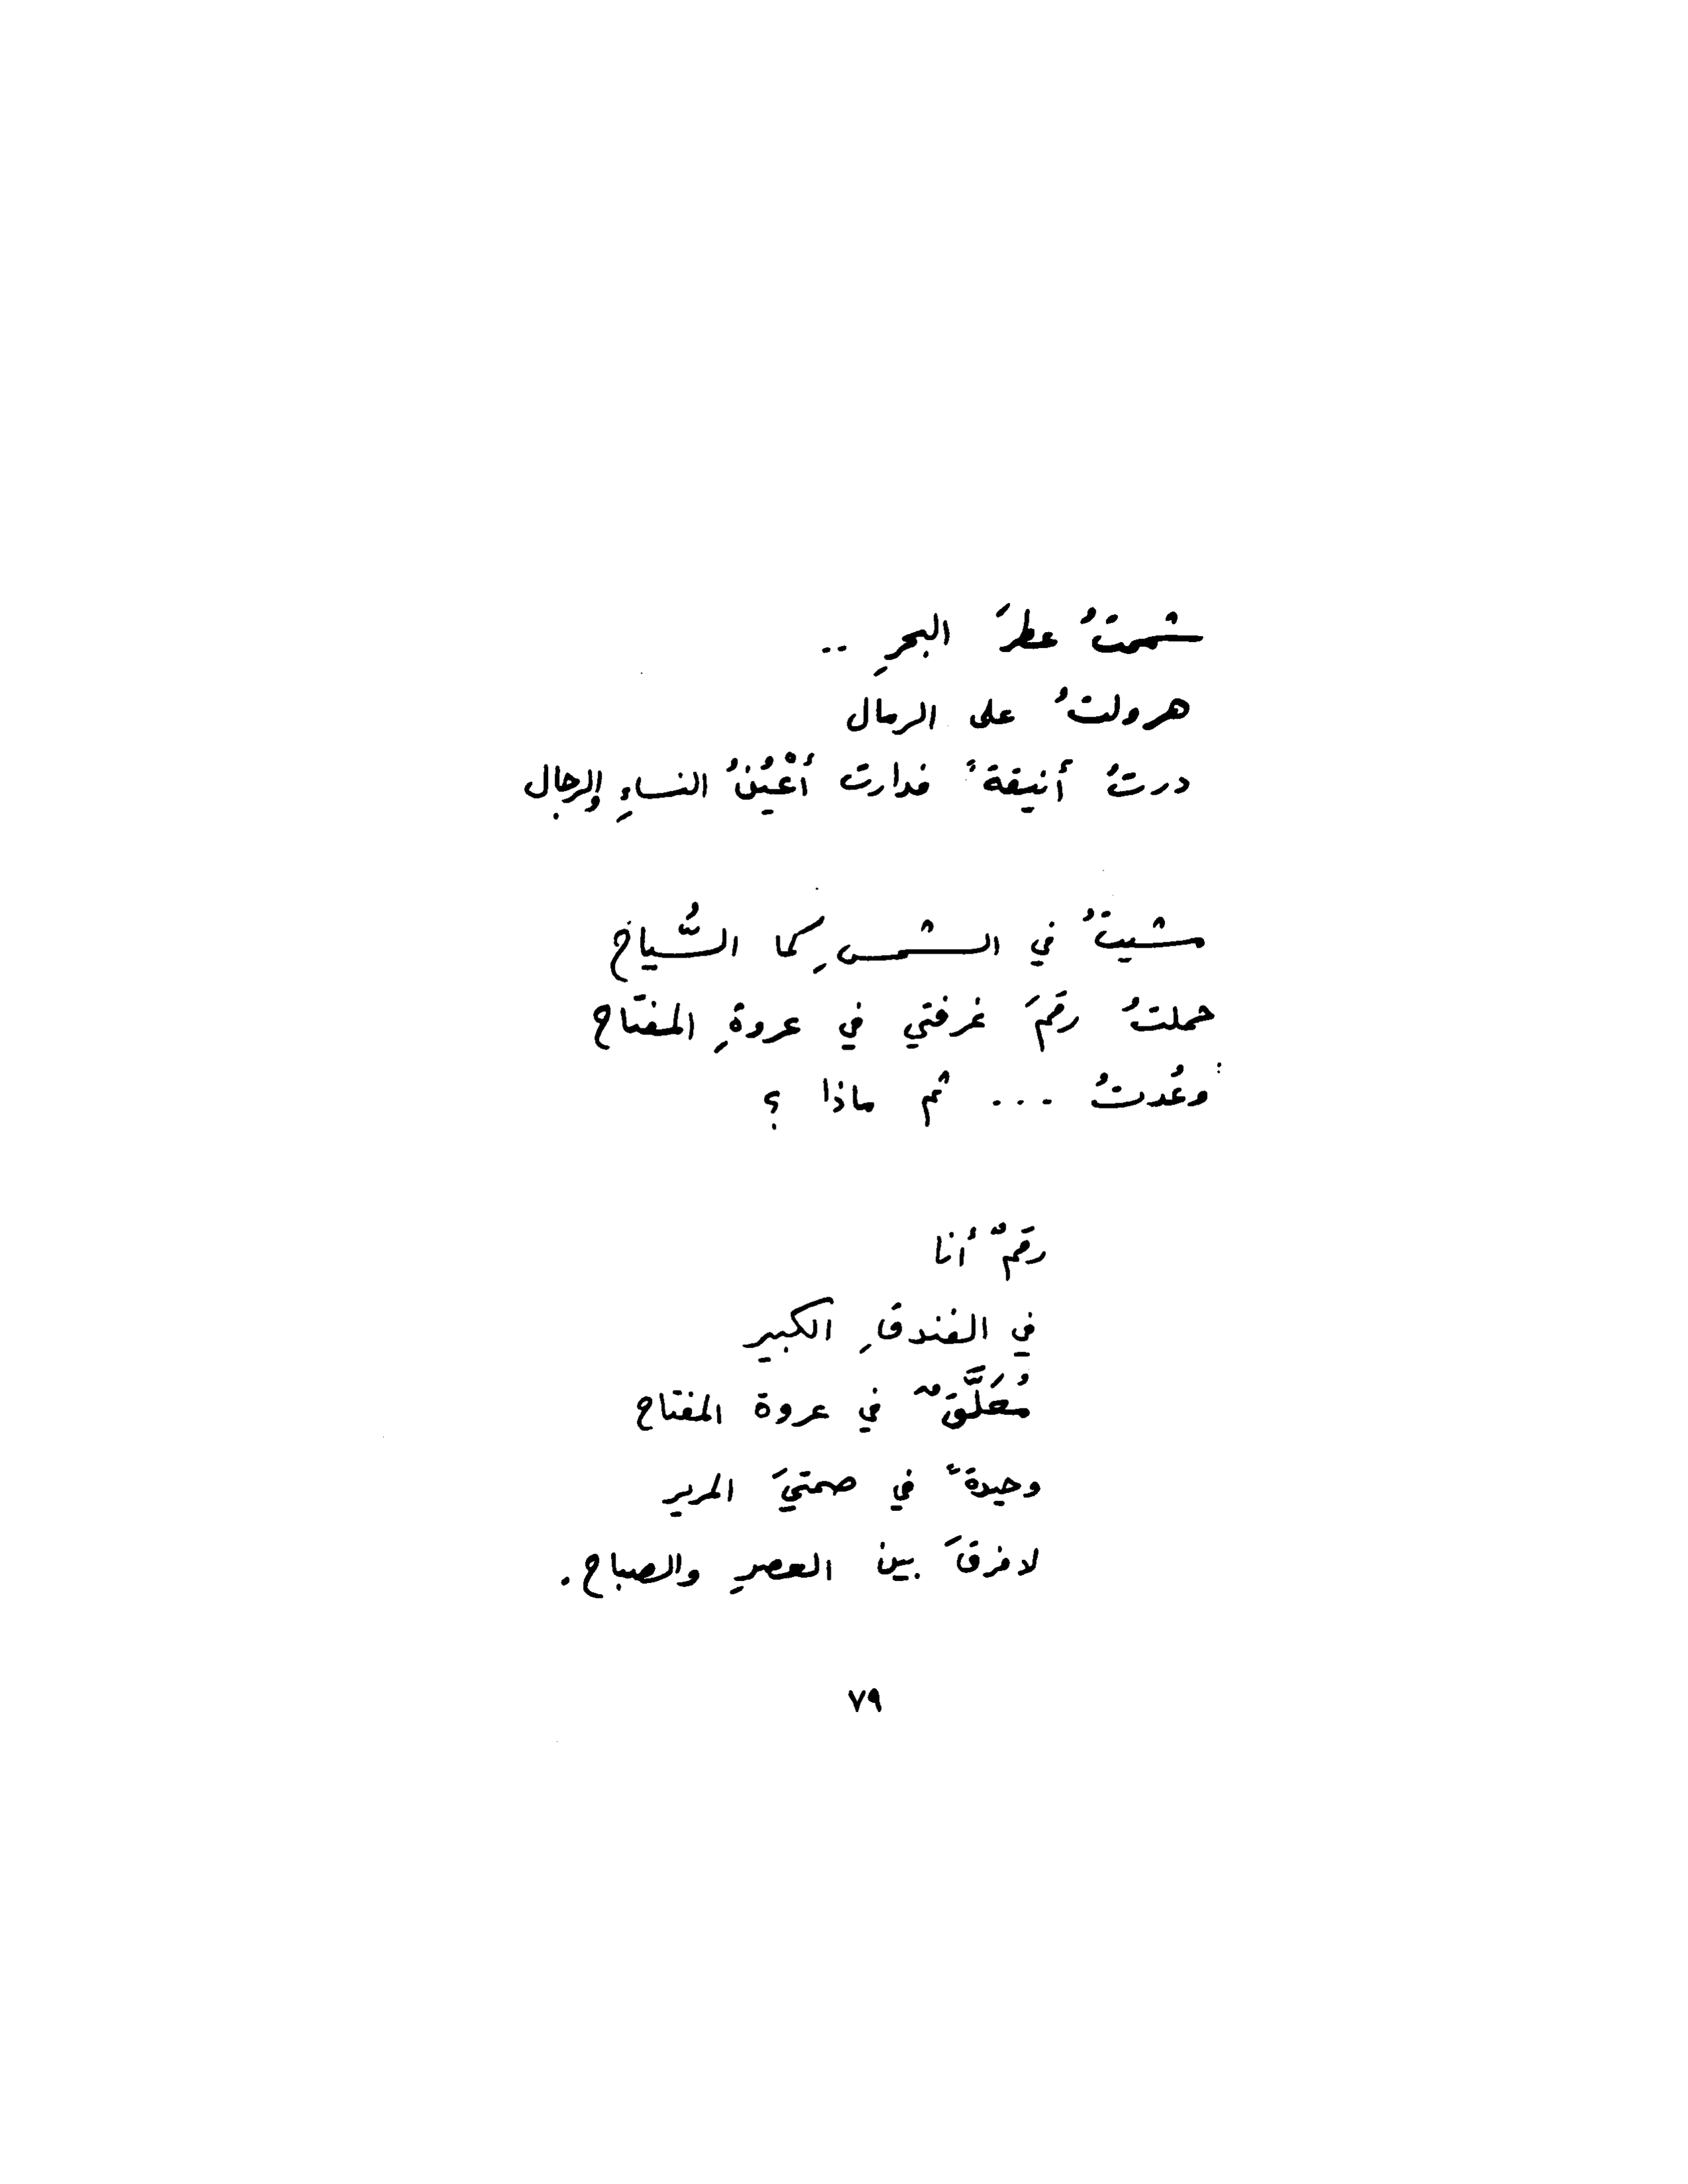 شممتُ عطرَ البحرِ ..
هرولتُ على الرمال
درتُ أنيقةً فدارت أعْيُنُ النساءِ والرجال
مشيتُ في الشمسِ كما السُّياح
حملتُ رقمَ غرفتي في عروةِ المفتاح
وعُدتُ ... ثم ماذا ؟
رقمٌ أنا
في الفندقِ الكبير
مُعَلَّقٌ في عروة المفتاح
وحيدةً في صمتيَ المرير
لا فرقَ بين العصرِ والصباح.
٧٩